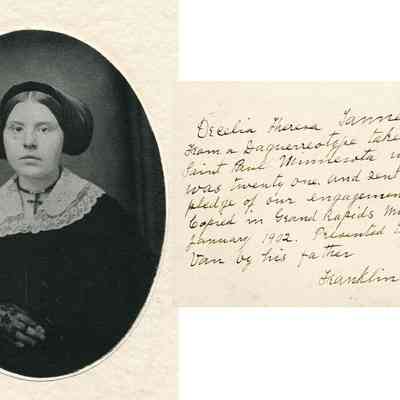 Decelia Theresa Tanne
From a Daguerreotype take
Saint Paul Minnesota
was twenty one and sent
pledge of our engagemen
Copied in Grand Rapids
January 1902. Presented
Van by his father
Franklin